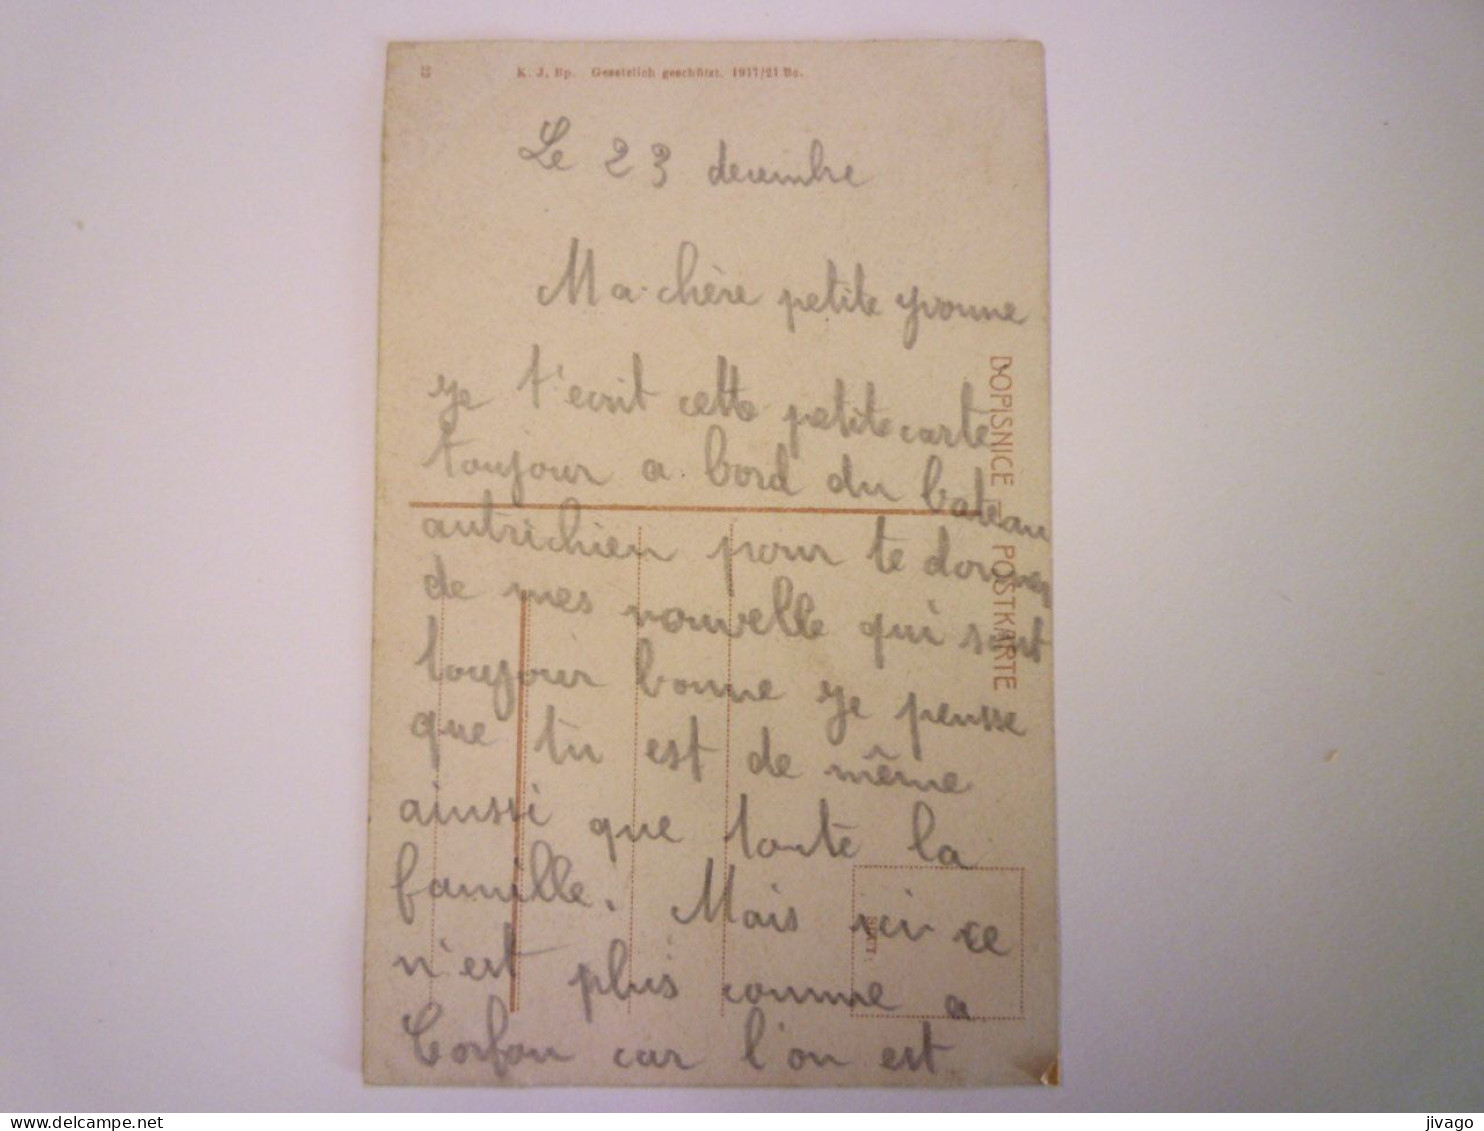 K. J. Bp. Gesetzlich geschützt. 1917/21 Bc.
Le 23 decembre
Ma chère petite Yvonne
je t'ecrit cette petite carte
toujour a bord du bateau
autrichien pour te donner
de mes nouvelle qui sont
toujour bonne je pensse
que tu est de même
ainssi que toute la
famille. Mais ici ce
n'est plus comme a
Corfou car l'on est
DOPISNICE POSTKARTE
jivago
delcampe.net